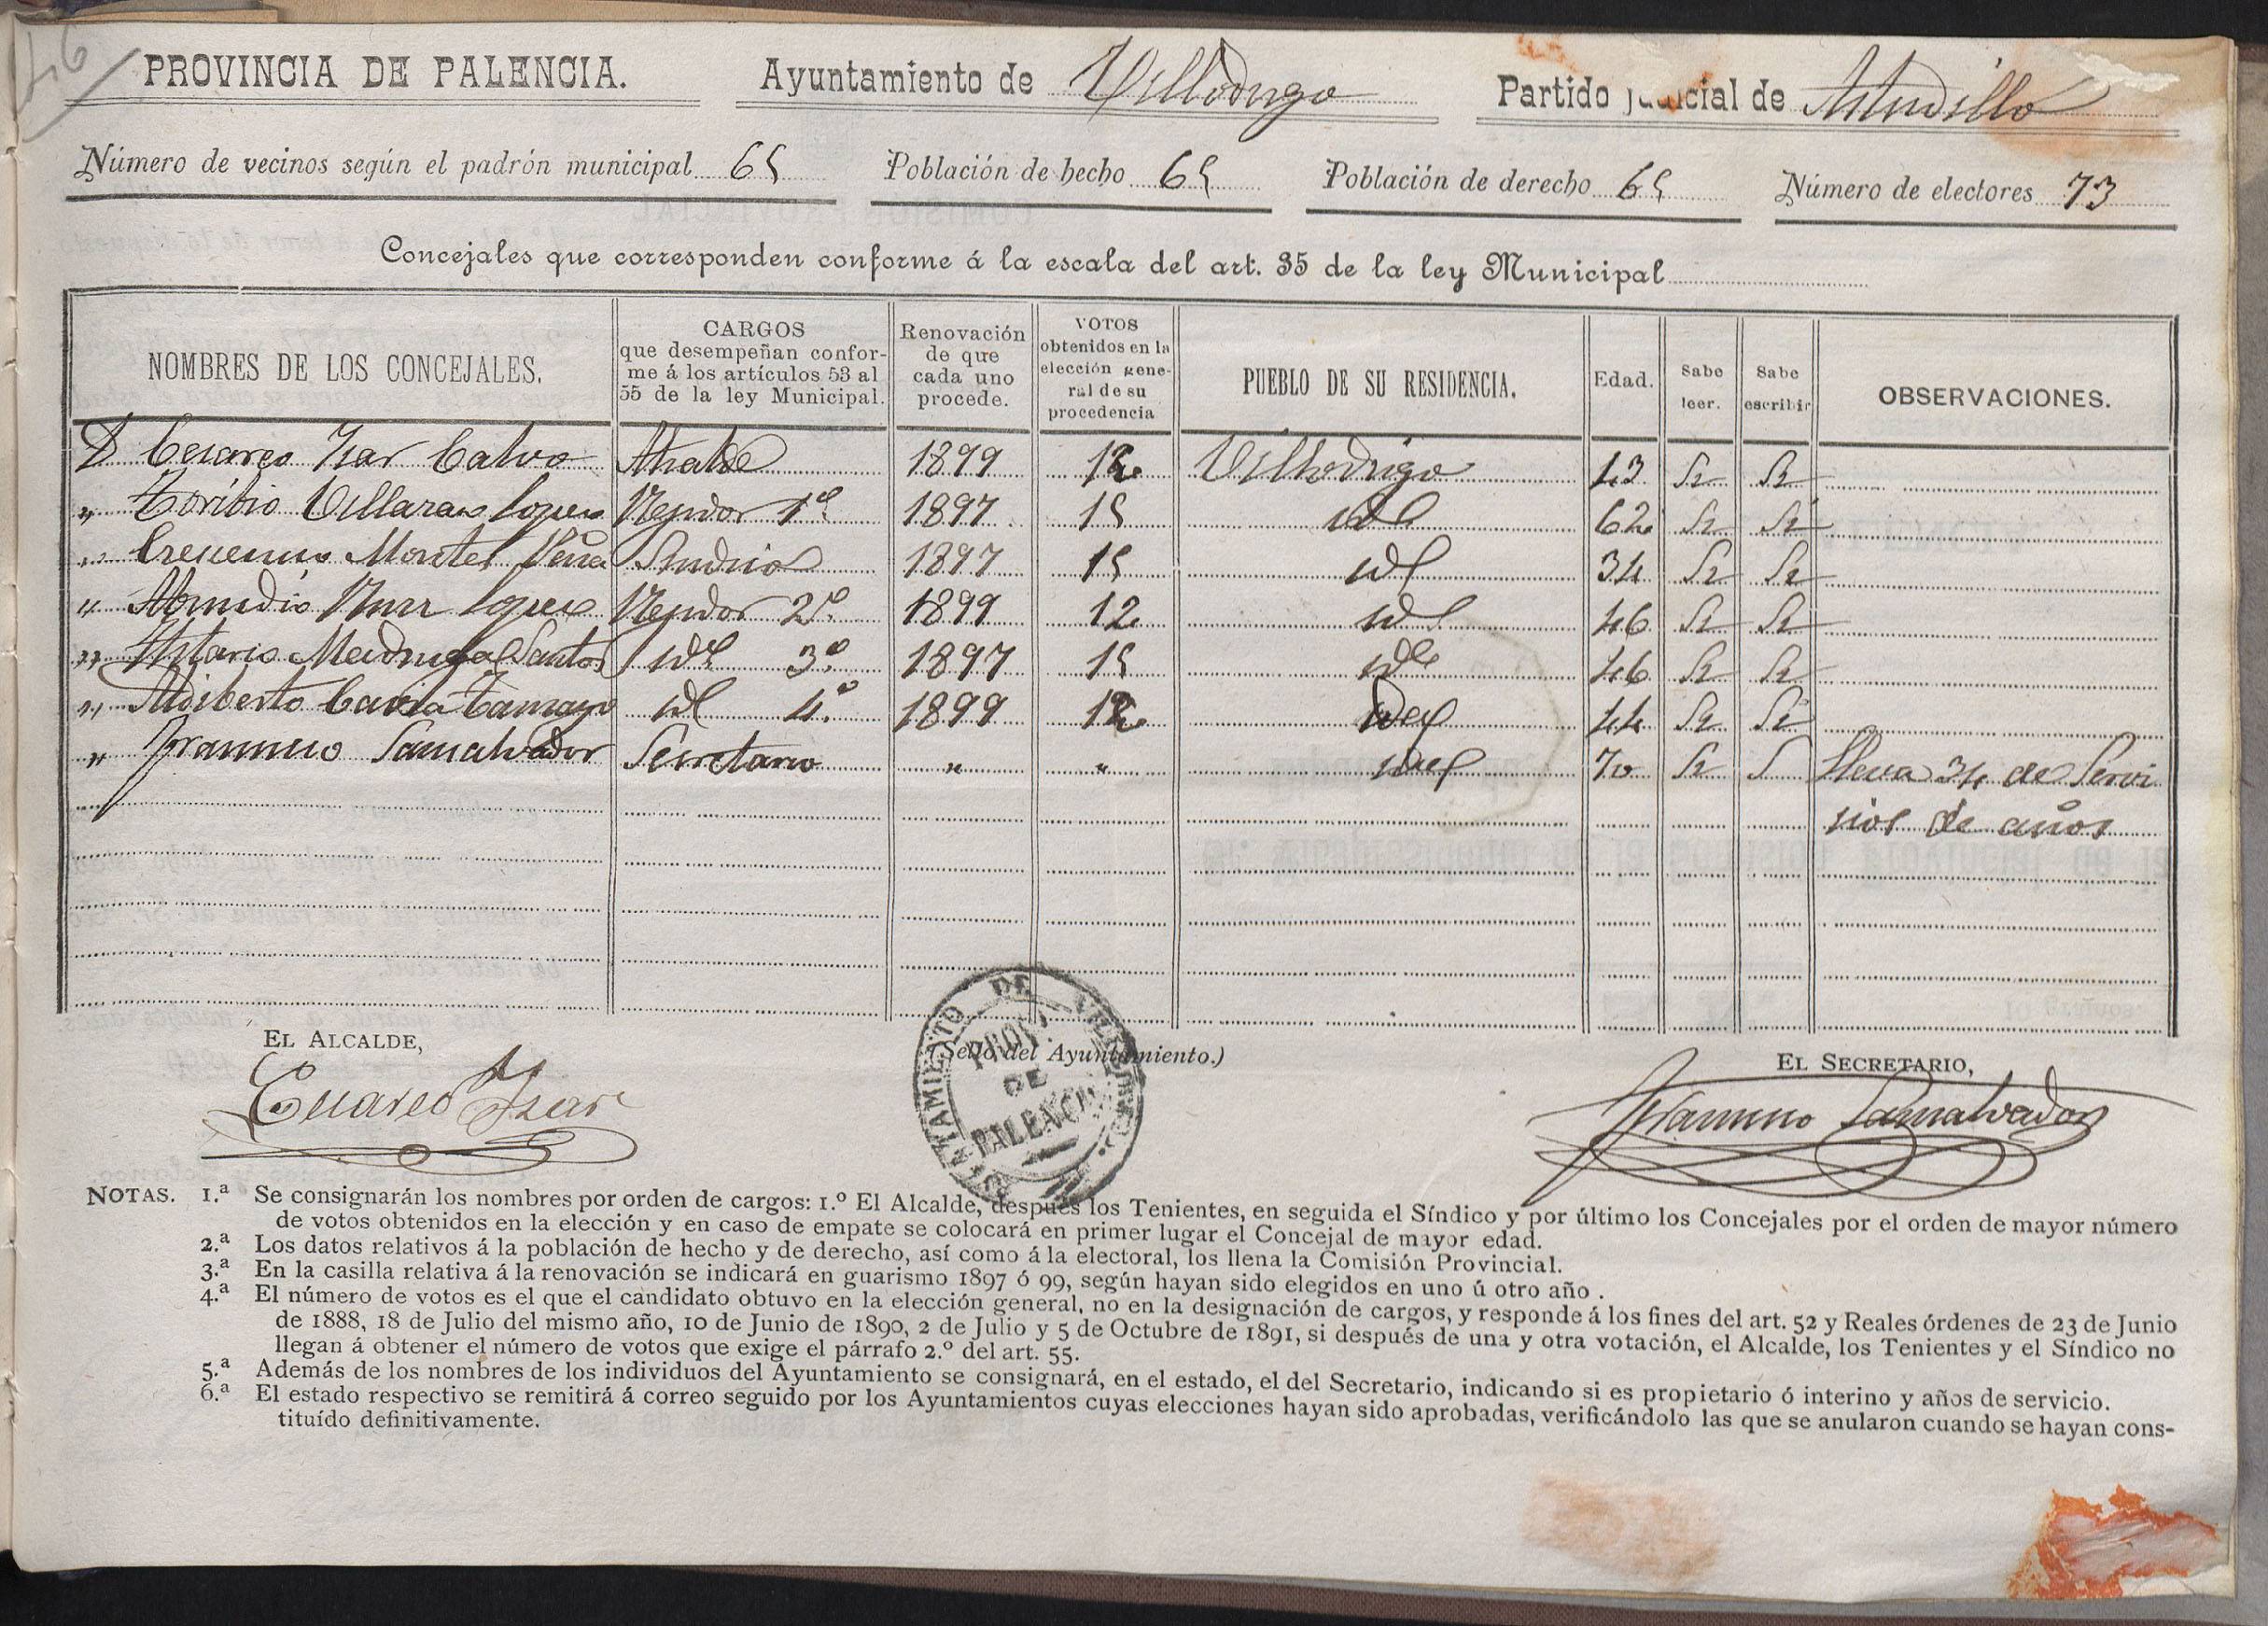 46
PROVINCIA DE PALENCIA. Ayuntamiento de Villodrigo Partido judicial de Astudillo
Número de vecinos según el padrón municipal 65 Población de hecho 65 Población de derecho 65 Número de electores 73
Concejales que corresponden conforme á la escala del art. 35 de la ley Municipal
NOMBRES DE LOS CONCEJALES. CARGOS que desempeñan confor- me á los artículos 53 al 55 de la ley Municipal. Renovación de que cada uno procede. VOTOS obtenidos en la elección gene- ral de su procedencia PUEBLO DE SU RESIDENCIA. Edad. Sabe leer. Sabe escribir OBSERVACIONES.
D Cesareo Izar Calvo Alcalde 1899 12 Villodrigo 43 Si Si
" Toribio Villaran Lopez Regidor 1º 1897 15 id 62 Si Si
" Montes Peña Sindico 1897 15 id 34 Si Si
" Lopez Regidor 2º 1899 12 id 46 Si Si
" Madruga Santos id 3º 1897 15 id 46 Si Si
" Adiberto Tamayo id 4º 1899 12 id 44 Si Si
" Francisco Sansalvador Secretario " " id 70 Si S Lleva 34 de Servi
cios de años
EL ALCALDE, (Sello del Ayuntamiento.) EL SECRETARIO,
AYUNTAMIENTO DE VILLODRIGO
PROV. DE PALENCIA
Cesareo Izar Francisco Sansalvador
NOTAS. 1.ª Se consignarán los nombres por orden de cargos: 1.º El Alcalde, después los Tenientes, en seguida el Síndico y por último los Concejales por el orden de mayor número
de votos obtenidos en la elección y en caso de empate se colocará en primer lugar el Concejal de mayor edad.
2.ª Los datos relativos á la población de hecho y de derecho, así como á la electoral, los llena la Comisión Provincial.
3.ª En la casilla relativa á la renovación se indicará en guarismo 1897 ó 99, según hayan sido elegidos en uno ú otro año.
4.ª El número de votos es el que el candidato obtuvo en la elección general, no en la designación de cargos, y responde á los fines del art. 52 y Reales órdenes de 23 de Junio
de 1888, 18 de Julio del mismo año, 10 de Junio de 1890, 2 de Julio y 5 de Octubre de 1891, si después de una y otra votación, el Alcalde, los Tenientes y el Síndico no
llegan á obtener el número de votos que exige el párrafo 2.º del art. 55.
5.ª Además de los nombres de los individuos del Ayuntamiento se consignará, en el estado, el del Secretario, indicando si es propietario ó interino y años de servicio.
6.ª El estado respectivo se remitirá á correo seguido por los Ayuntamientos cuyas elecciones hayan sido aprobadas, verificándolo las que se anularon cuando se hayan cons-
tituído definitivamente.